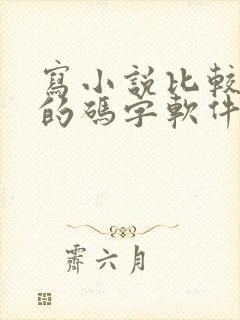 寫小說比較
的碼字軟件
霽六月